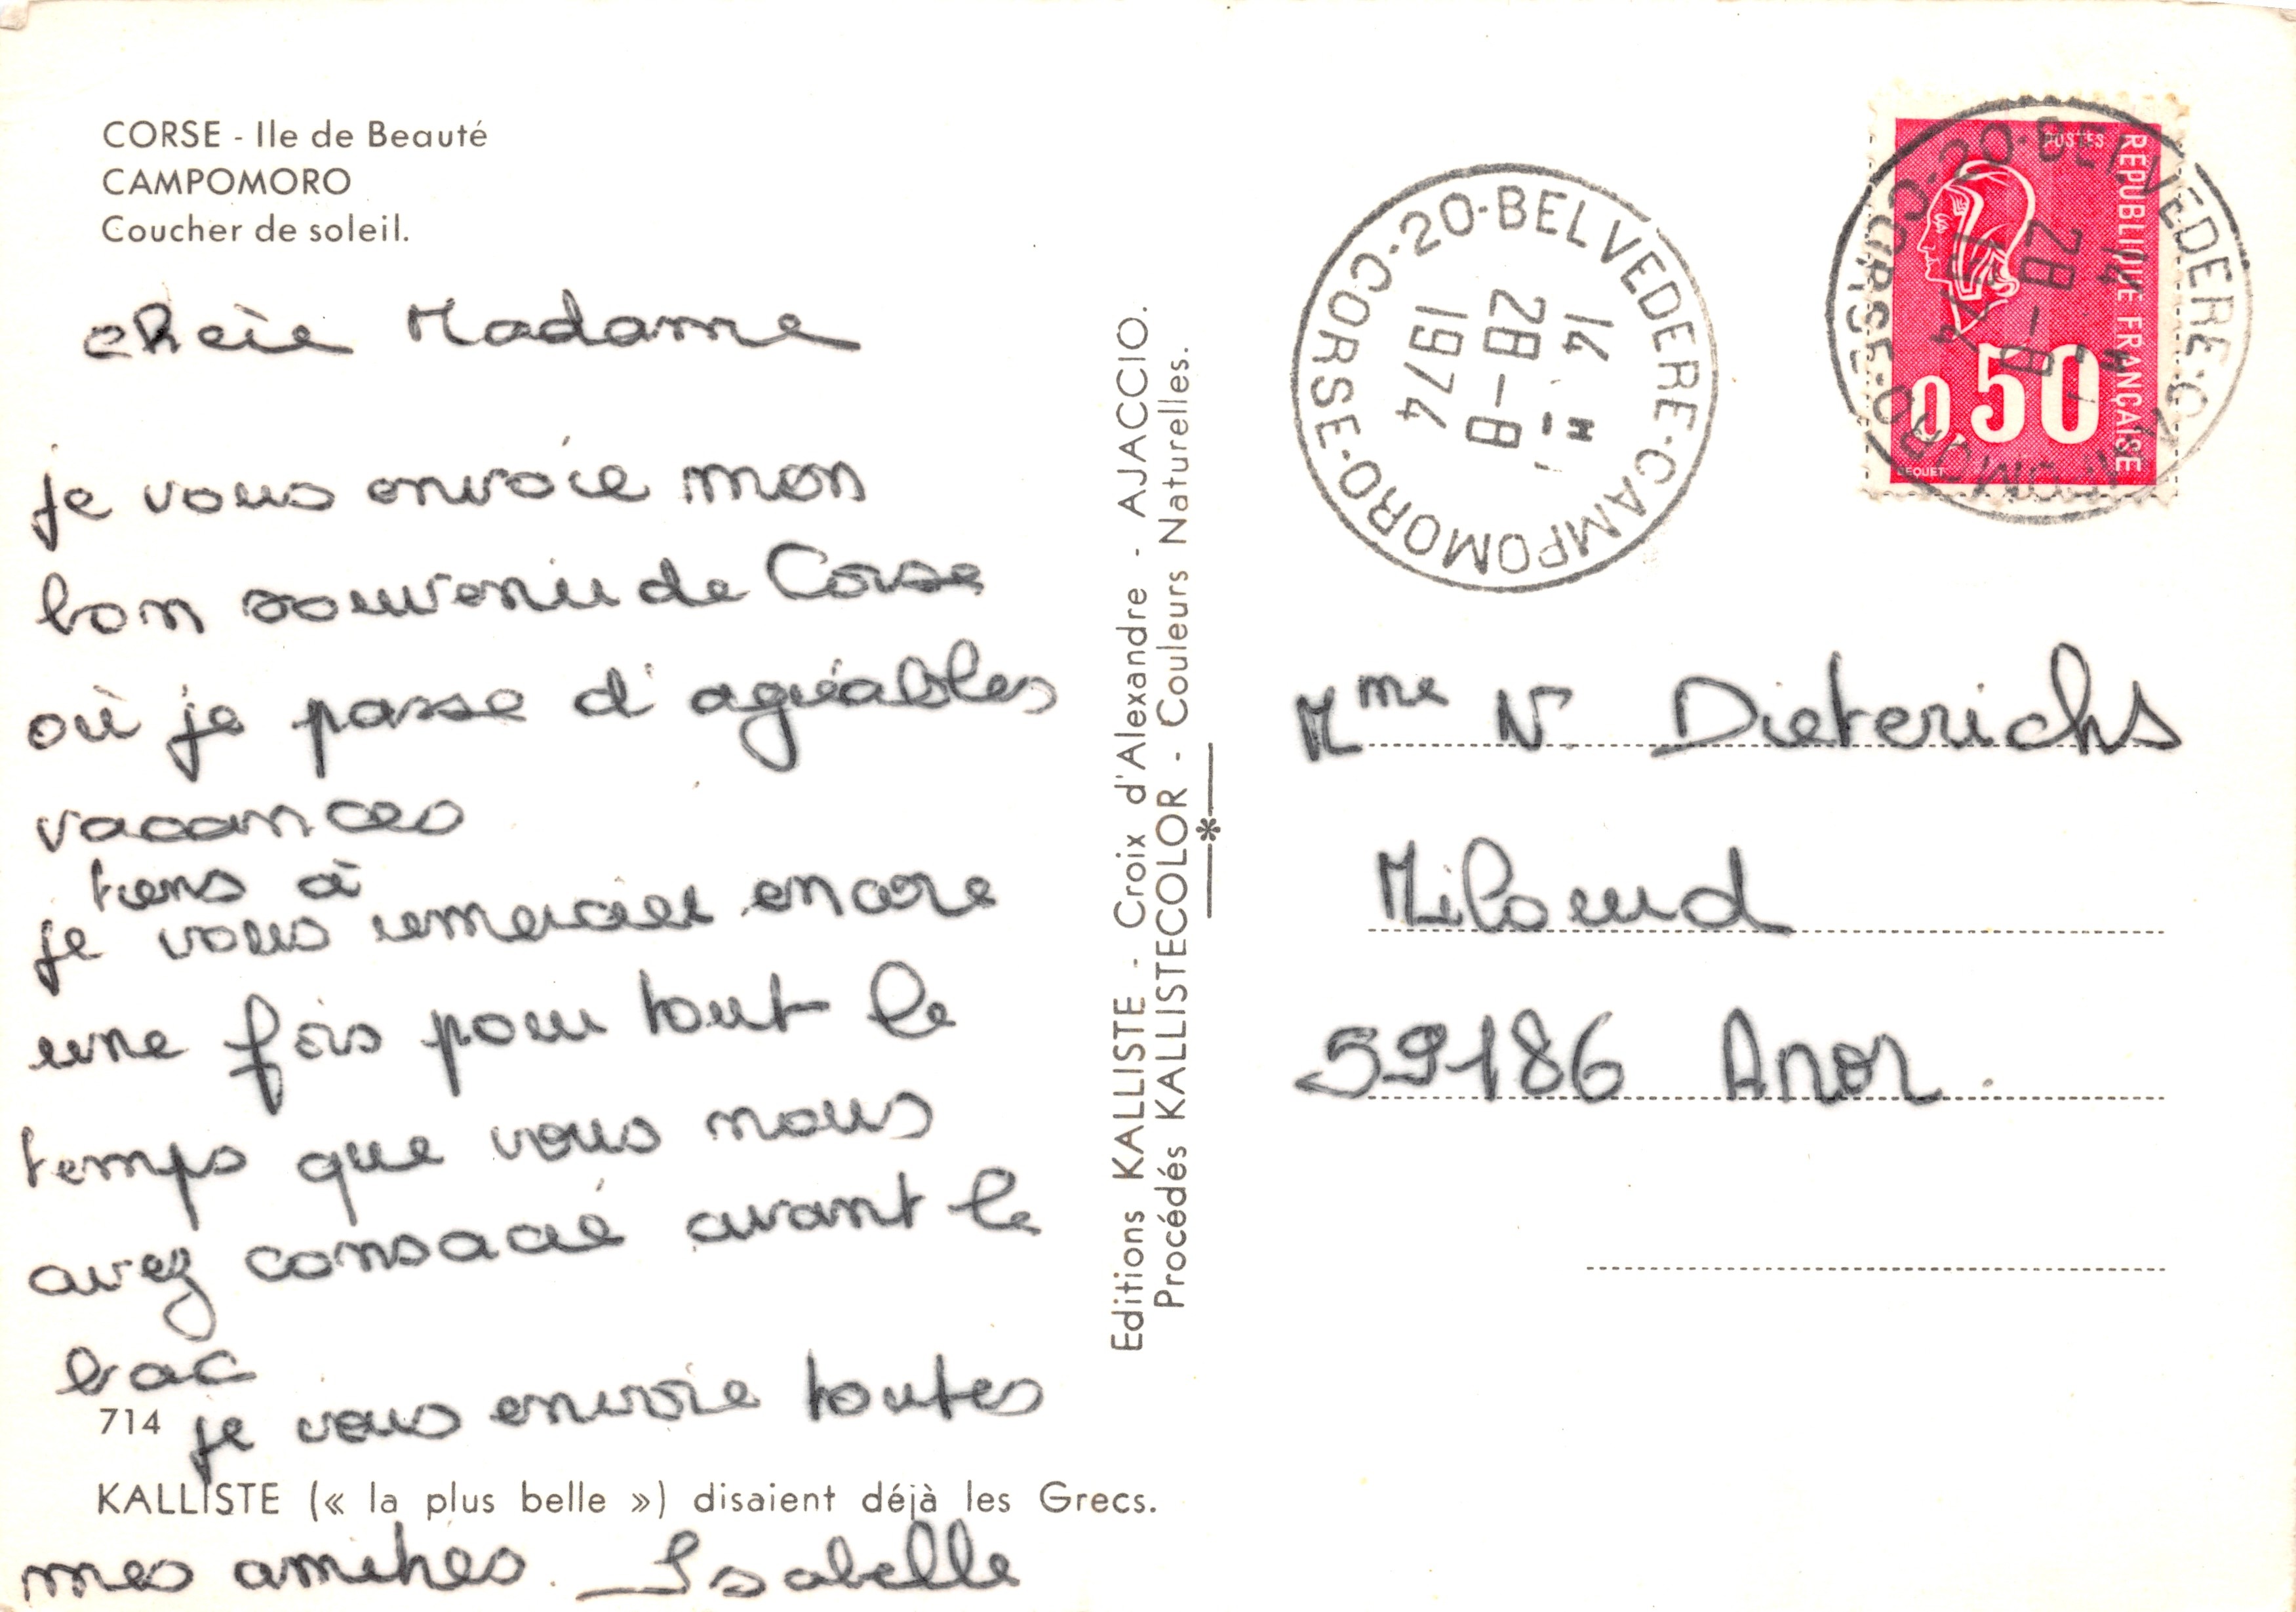 CORSE - Ile de Beauté
CAMPOMORO
Coucher de soleil.
chère Madame
je vous envoie mon
bon souvenir de Corse
où je passe d'agréables
vacances
tiens à
je vous remercier encore
une fois pour tout le
temps que vous nous
avez consacré avant le
bac
714 je vous envoie toutes
KALLISTE (« la plus belle ») disaient déjà les Grecs.
mes amitiés. Isabelle
Editions KALLISTE - Croix d'Alexandre - AJACCIO.
Procédés KALLISTECOLOR - Couleurs Naturelles.
20-BELVEDERE-CAMPOMORO-CORSE-CO
14 H
28-8
1974
POSTES
REPUBLIQUE FRANÇAISE
0,50
BEQUET
20-BELVEDERE-CAMPOMORO-CORSE-CO
14 H
28-8
1974
Mme N. Dieterichs
Milourd
59186 Anor.